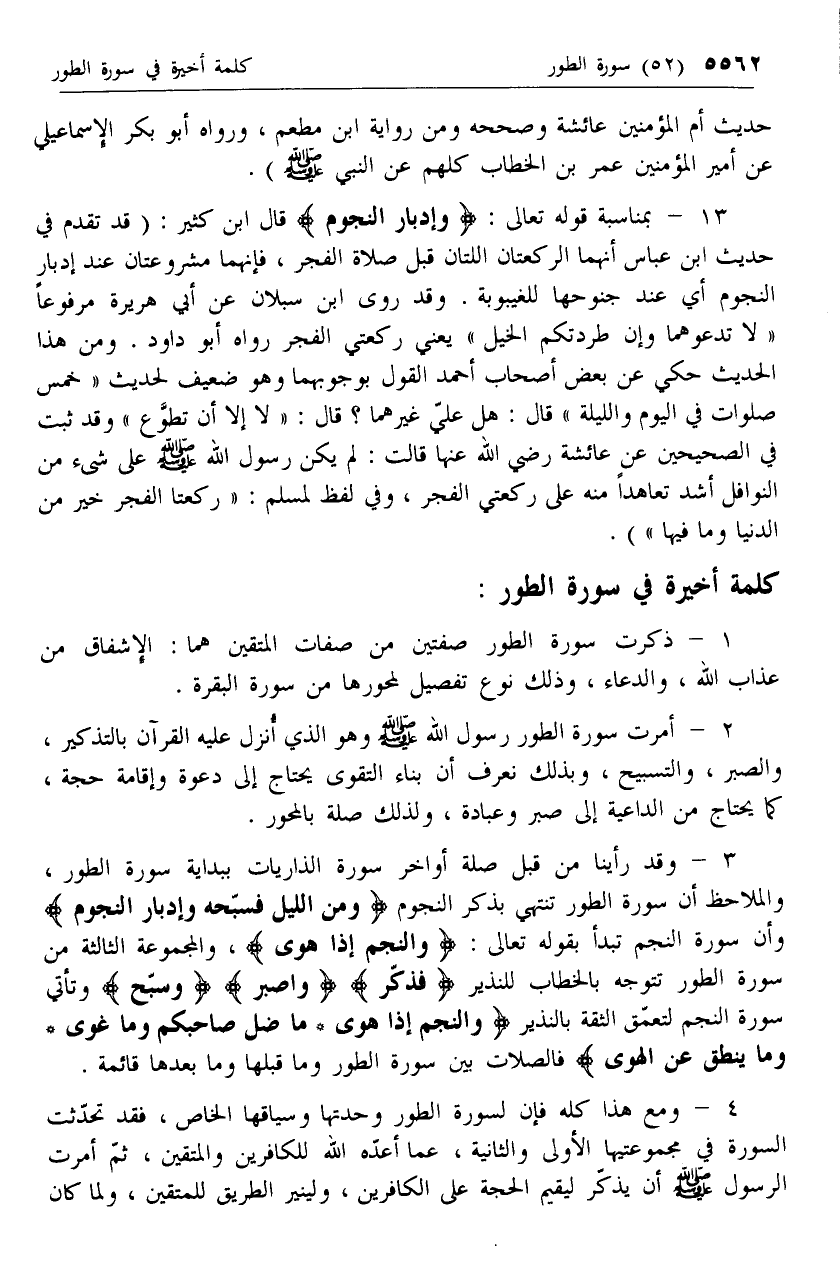 ٥٥٦٢ (٥٢) سورة الطور كلمة أخيرة في سورة الطور
حديث أم المؤمنين عائشة وصححه ومن رواية ابن مطعم ، ورواه أبو بكر الإسماعيلي
عن أمير المؤمنين عمر بن الخطاب كلهم عن النبي ﷺ ) .
١٣ – بمناسبة قوله تعالى : ﴿ وإدبار النجوم ﴾ قال ابن كثير : ( قد تقدم في
حديث ابن عباس أنهما الركعتان اللتان قبل صلاة الفجر ، فإنهما مشروعتان عند إدبار
النجوم أي عند جنوحها للغيبوبة . وقد روى ابن سبلان عن أبي هريرة مرفوعاً
« لا تدعوهما وإن طردتكم الخيل » يعني ركعتي الفجر رواه أبو داود . ومن هذا
الحديث حكي عن بعض أصحاب أحمد القول بوجوبهما وهو ضعيف لحديث « خمس
صلوات في اليوم والليلة » قال : هل عليّ غيرهما ؟ قال : « لا إلا أن تطوَّع » وقد ثبت
في الصحيحين عن عائشة رضي الله عنها قالت : لم يكن رسول الله ﷺ على شىء من
النوافل أشد تعاهداً منه على ركعتي الفجر ، وفي لفظ لمسلم : « ركعتا الفجر خير من
الدنيا وما فيها » ) .
كلمة أخيرة في سورة الطور :
١ – ذكرت سورة الطور صفتين من صفات المتقين هما : الإشفاق من
عذاب الله ، والدعاء ، وذلك نوع تفصيل لمحورها من سورة البقرة .
٢ – أمرت سورة الطور رسول الله ﷺ وهو الذي أُنزل عليه القرآن بالتذكير ،
والصبر ، والتسبيح ، وبذلك نعرف أن بناء التقوى يحتاج إلى دعوة وإقامة حجة ،
كما يحتاج من الداعية إلى صبر وعبادة ، ولذلك صلة بالمحور .
٣ – وقد رأينا من قبل صلة أواخر سورة الذاريات ببداية سورة الطور ،
والملاحظ أن سورة الطور تنتهي بذكر النجوم ﴿ ومن الليل فسبّحه وإدبار النجوم ﴾
وأن سورة النجم تبدأ بقوله تعالى : ﴿ والنجم إذا هوى ﴾ ، والمجموعة الثالثة من
سورة الطور تتوجه بالخطاب للنذير ﴿ فذكّر ﴾ ﴿ واصبر ﴾ ﴿ وسبّح ﴾ وتأتي
سورة النجم لتعمّق الثقة بالنذير ﴿ والنجم إذا هوى * ما ضل صاحبكم وما غوى *
وما ينطق عن الهوى ﴾ فالصلات بين سورة الطور وما قبلها وما بعدها قائمة .
٤ – ومع هذا كله فإن لسورة الطور وحدتها وسياقها الخاص ، فقد تحدّثت
السورة في مجموعتيها الأولى والثانية ، عما أعدّه الله للكافرين والمتقين ، ثمّ أمرت
الرسول ﷺ أن يذكّر ليقيم الحجة على الكافرين ، ولينير الطريق للمتقين ، ولما كان